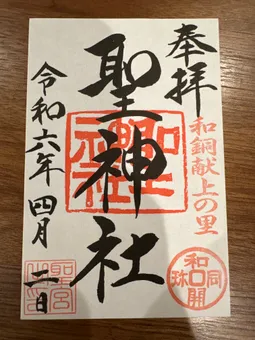 奉拝
和銅献上の里
聖神社
令和六年四月二日
和同開珎